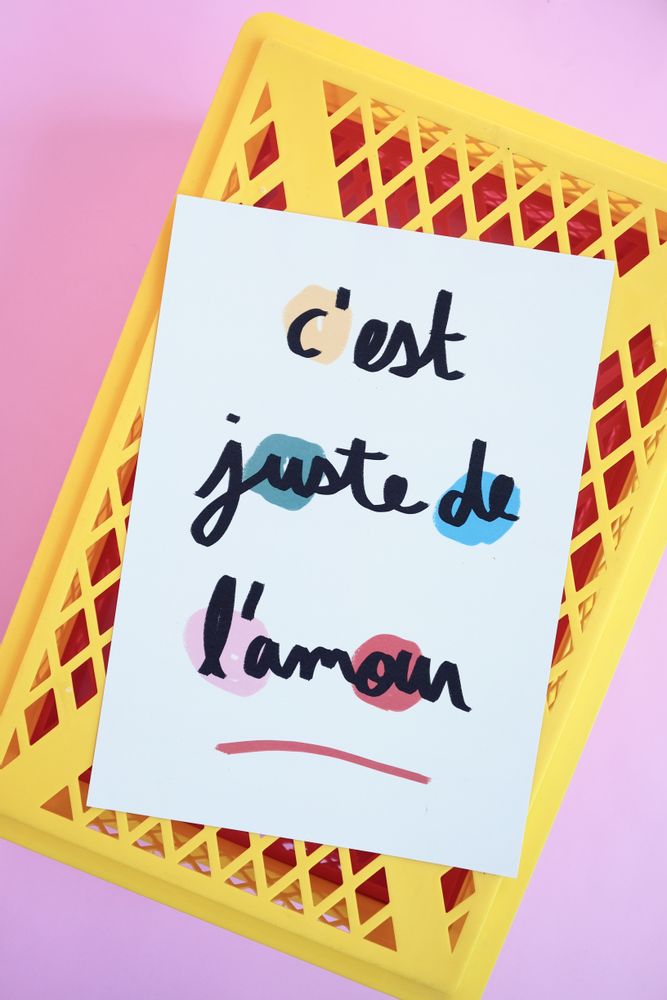 c'est
juste de
l'amour